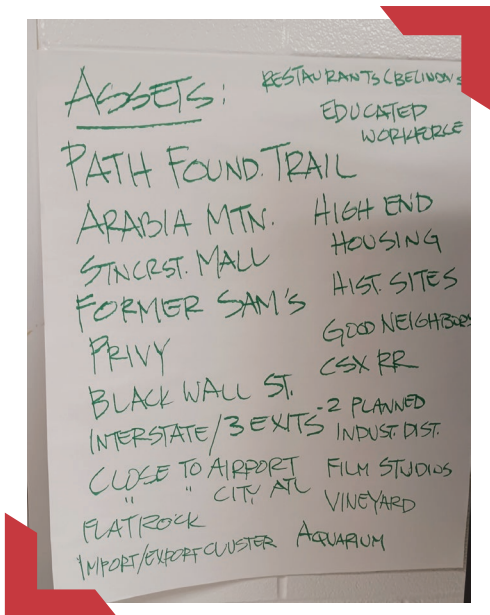 ASSETS:
PATH FOUND. TRAIL
ARABIA MTN.
STNCRST. MALL
FORMER SAM'S
PRIVY
BLACK WALL ST.
INTERSTATE/3 EXITS
CLOSE TO AIRPORT
" " CITY ATL
FLAT ROCK
IMPORT/EXPORT CLUSTER
RESTAURANTS (BELINDA'S
EDUCATED
WORKFORCE
HIGH END
HOUSING
HIST. SITES
GOOD NEIGHBORS
CSX RR
-2 PLANNED
INDUST. DIST.
FILM STUDIOS
VINEYARD
AQUARIUM